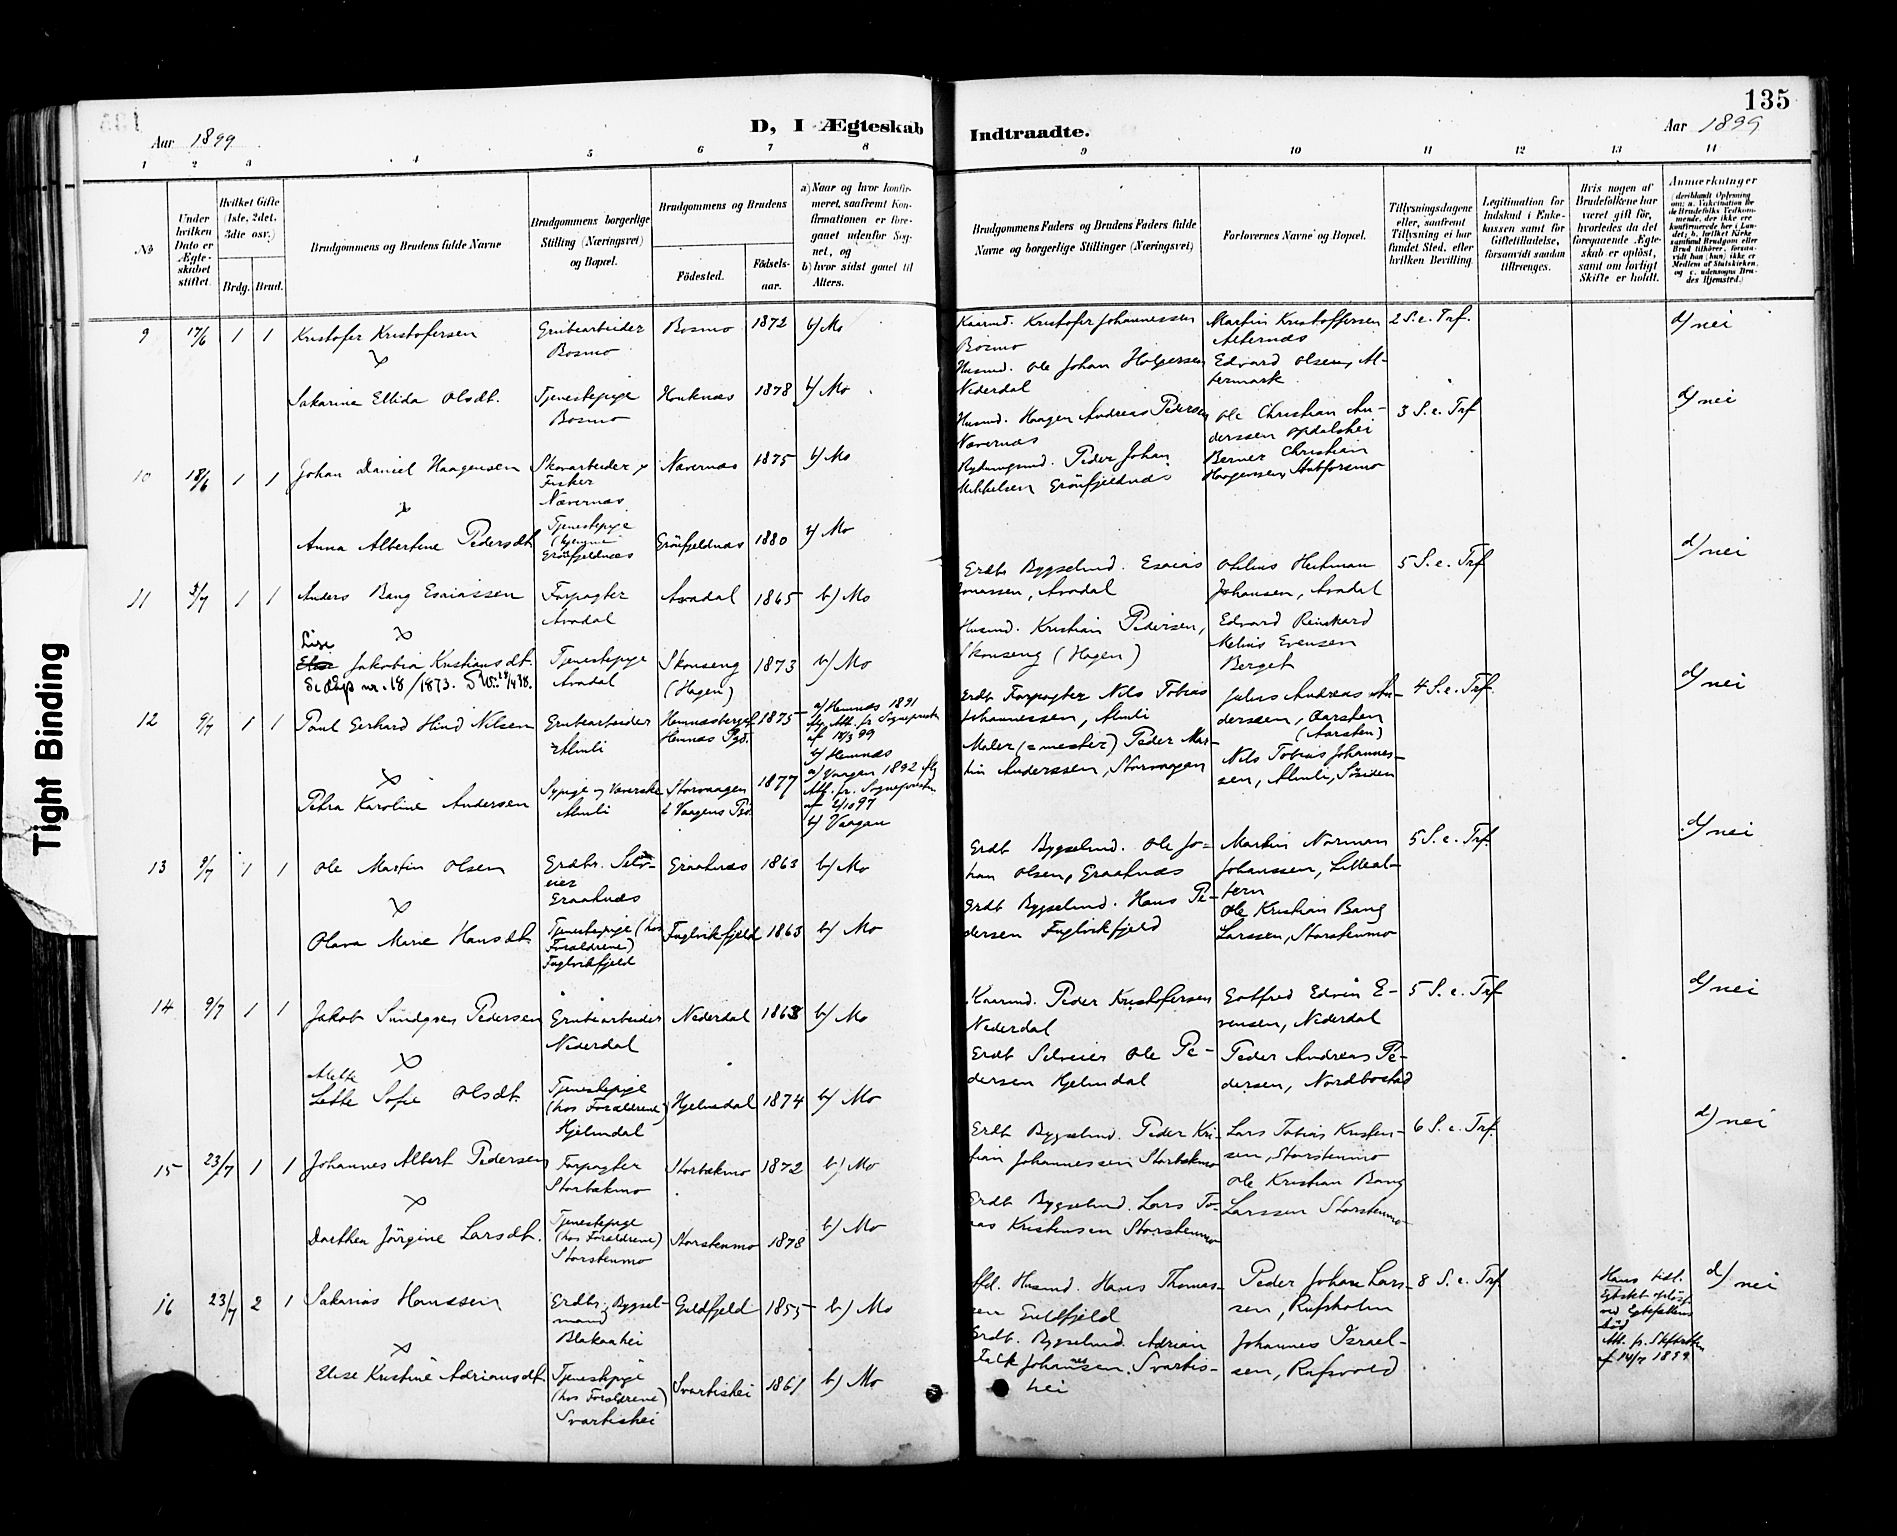 135
Aar 1899
D, I Ægteskab Indtraadte.
Aar 1899
1 2 3 4 5 6 7 8 9 10 11 12 13 14
No
Under hvilken Dato er Ægteskabet stiftet.
Hvilket Gifte (1ste, 2det, 3die osv.)
Brdg. Brud.
Brudgommens og Brudens fulde Navne
Brudgommens borgerlige Stilling (Næringsvei) og Bopæl.
Brudgommens og Brudens
Födested.
Födselsaar.
a) Naar og hvor konfirmeret, saafremt Konfirmationen er foregaaet udenfor Sognet, og
b) hvor sidst gaaet til Alters.
Brudgommens Faders og Brudens Faders fulde Navne og borgerlige Stillinger (Næringsvei)
Forlovernes Navne og Bopæl.
Tillysningsdagene eller, saafremt Tillysning ei har fundet Sted, efter hvilken Bevilling.
Legitimation for Indskud i Enkekassen samt for Giftetilladelse, forsaavidt saadan tiltrænges.
Hvis nogen af Brudefolkene har været gift för, hvorledes da det foregaaende Ægteskab er oplöst, samt om lovligt Skifte er holdt.
Anmærkninger
9 17/6 1 1 Kristofer Kristofersen Grubearbeider Bosmo Bosmo 1872 b) Mo
Kaarmd. Kristofer Johannessen Bosmo
Martin Kristoffersen Alternæs
2 S. e. Trf. d) nei
x
Sakarine Ellida Olsdt. Tjenestepige Bosmo Hauknæs 1878 b) Mo
Husmd. Ole Johan Holgersen Nederdal
Edvard Olsen, Altermark
10 18/6 1 1 Johan Daniel Haagensen Skovarbeider x Fisker Nævernæs Nævernæs 1875 b) Mo
Husmd. Haagen Andreas Pedersen Nævernæs
Ole Christian Anderssen Opdalshei
3 S. e. Trf d) nei
x
Anna Albertine Pedersdt Tjenestepige Grönfjeldnæs Grönfjeldnæs 1880 b) Mo
Rydningsmd. Peder Johan Mikkelsen Grönfjeldnæs
Berner Christian Haagensen, Stabforsmo
11 3/7 1 1 Anders Bang Esaiassen Forpagter Avadal Avadal 1865 b) Mo
Grdbr Bygselmd. Esaias Jonassen, Avadal
Johansen, Avadal
5 S. e. Trf d) nei
x
Lise
Elise Jakobia Kristiansdt. Tjenestepige Avadal Skonseng (Hagen) 1873 b) Mo
Se dåp nr. 18/1873.
Husmd. Kristian Pedersen, Skonseng (Hagen)
Edvard Reinhard Melius Evensen Berget
12 9/7 1 1 Paul Gerhard Hind Nilsen Grubearbeider Almli Hemnæsberget Hemnæs Pgd. 1875
a) Hemnæs 1891 iflg. Att. fr. Sognepresten af 18/3 99
b) Hemnæs
Grdbr Forpagter Nils Tobias Johannessen, Almli
Julius Andreas Anderssen, Aarsten (Aarsten)
4 S. e. Trf. d) nei
x
Petra Karoline Andersen Sypige og Væverske Almli Storvaagen i Vaagens Pgd. 1877
a) Vaagan 1892 iflg Att. fr. Sognepresten af 2/10 97
b) Vaagan
Maler (=mester) Peder Martin Anderssen, Storvaagen
Nils Tobias Johannessen, Almli, Sösiden
13 9/7 1 1 Ole Martin Olsen Grdbr. Selveier Graaknæs Graaknæs 1863 b) Mo
Grdbr Bygselmd. Ole Johan Olsen, Graaknæs
Martin Norman Johanssen, Lillealteren
5 S. e. Trf. d) nei
x
Olava Marie Hansdt. Tjenestepige (hos Forældrene) Fuglvikfjeld Fuglvikfjeld 1863 b) Mo
Grdbr Bygselmd. Hans Pedersen Fuglvikfjeld
Ole Kristian Bang Larssen, Storstenmo
14 9/7 1 1 Jakob Sundgren Pedersen Grubearbeider Nederdal Nederdal 1868 b) Mo
Kaarmd. Peder Kristofersen Nederdal
Gotfred Edvin Evensen, Nederdal
5 S. e. Trf d) nei
x
Mette
Lette Sofie Olsdt. Tjenestepige (hos Forældrene) Hjelmdal Hjelmdal 1874 b) Mo
Grdbr Selveier Ole Pedersen Hjelmdal
Peder Andreas Pedersen, Nordbostad
15 23/7 1 1 Johannes Albert Pedersen Forpagter Storbækmo Storbækmo 1872 b) Mo
Grdbr Bygselmd. Peder Kristian Johannessen Storbækmo
Lars Tobias Kristensen, Storstenmo
6 S. e. Trf. d) nei
x
Dorthea Jörgine Larsdt. Tjenestepige (hos Forældrene) Storstenmo Storstenmo 1878 b) Mo
Grdbr Bygselmd. Lars Tobias Kristensen Storstenmo
Ole Kristian Bang Larssen Storstenmo
16 23/7 2 1 Sakarias Hanssen Grdbr. Bygselmand Blakaahei Guldfjeld 1855 b) Mo
Husmd. Hans Thomassen Guldfjeld
Peder Johan Larssen, Rufsholm
8 S. e. Trf
Hans tidl. Egtskb oplöst ved Egtefællens död Att. fr. Skifteretten af 14/7 1899
d) nei
x
Elise Kristine Adriansdt. Tjenestepige (hos Forældrene) Svartishei Svartishei 1861 b) Mo
Grdbr. Bygselmd Adrian Falk Johannesen. Svartishei
Johannes Israelsen, Rufsvold
Tight Binding